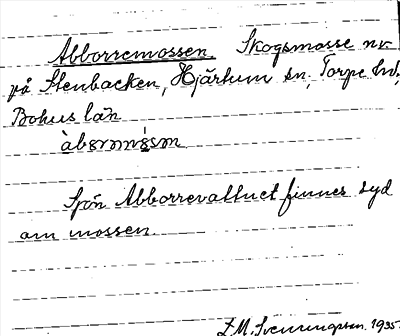 Abborremossen. Skogsmosse nv
på Stenbacken, Hjärtum sn, Torpe hd,
Bohus län
àbərmǻsən
Sjön Abborrevattnet finnes syd
om mossen.
F. M. Svenungsson. 1935